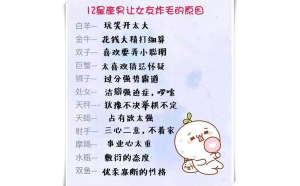 12星座男让女友炸毛的原因
白羊-- 玩笑开太大
金牛-- 花钱大精打细算
双子-- 喜欢耍弄小聪明
巨蟹-- 太喜欢猜忌怀疑
狮子-- 过分强势霸道
处女-- 洁癖强迫症，啰嗦
天秤-- 犹豫不决举棋不定
天蝎-- 占有欲太强
射手-- 三心二意，不着家
摩羯-- 事业心太重
水瓶-- 敷衍的态度
双鱼-- 优柔寡断的性格